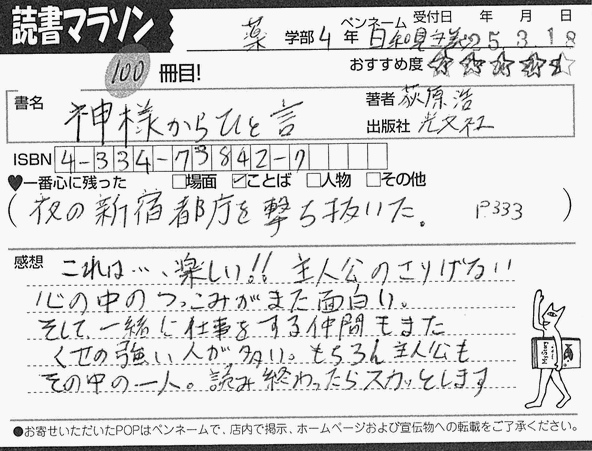 読書マラソン
薬 学部 4 年 ペンネーム 日和見主義 受付日 25 年 3 月 18 日
100 冊目!
おすすめ度 ☆☆☆☆☆
書名 神様からひと言
著者 荻原浩
出版社 光文社
ISBN 4-334-73842-7
♥一番心に残った □場面 ☑ことば □人物 □その他
(夜の新宿都庁を撃ち抜いた。 P333)
感想 これは…、楽しい!! 主人公のさりげない
心の中のつっこみがまた面白い。
そして一緒に仕事をする仲間もまた
くせの強い人が多い。もちろん主人公も
その中の一人。読み終わったらスカッとします
●お寄せいただいたPOPはペンネームで、店内で掲示、ホームページおよび宣伝物への転載をご了承ください。